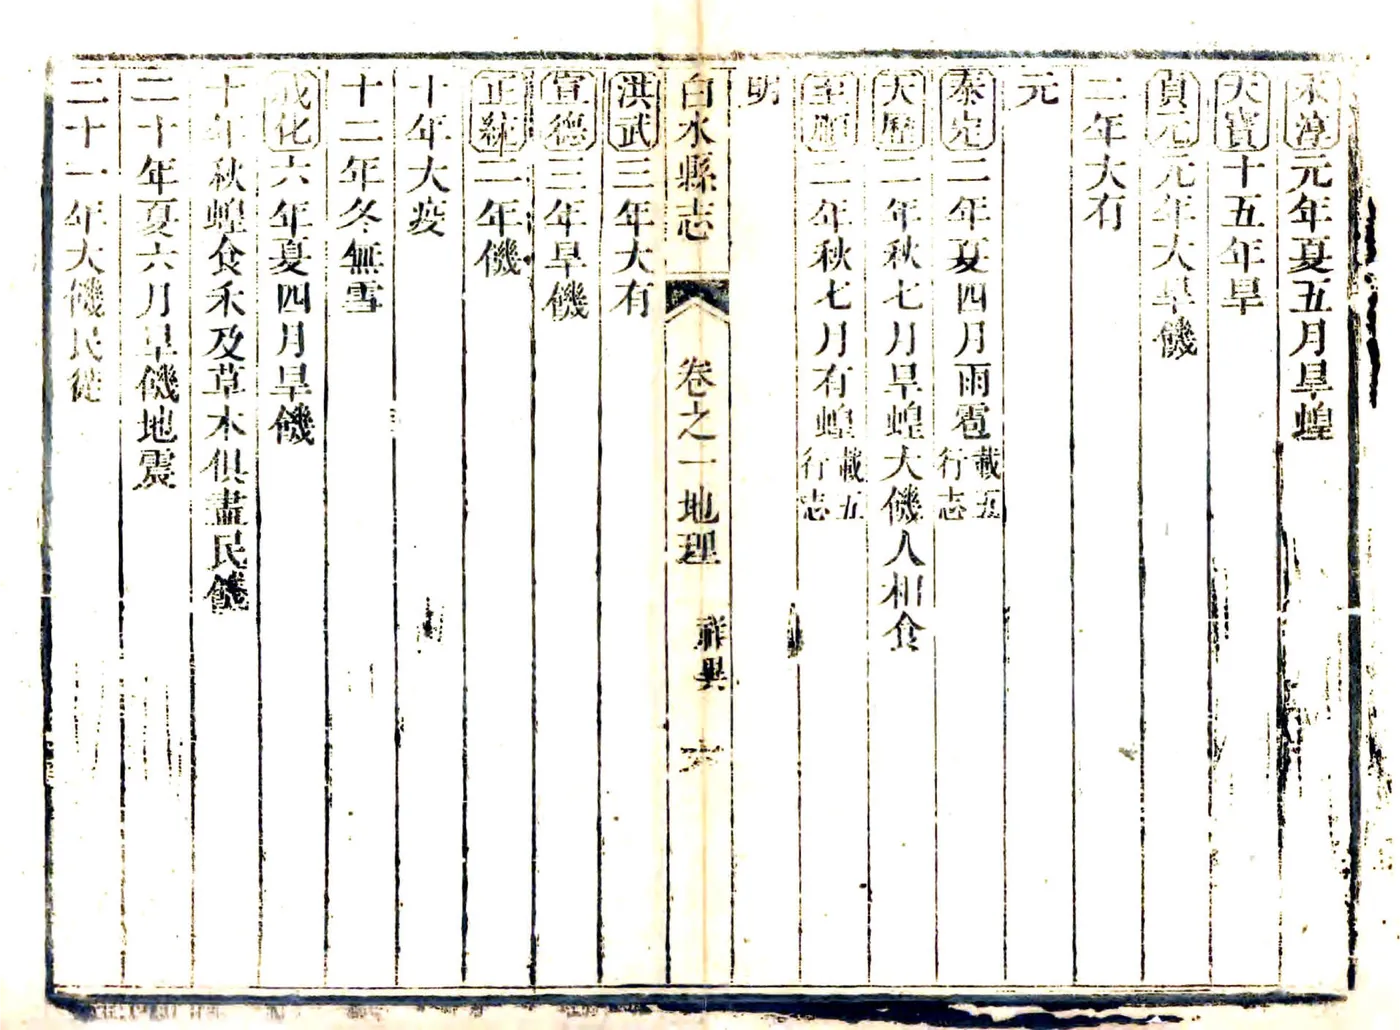 永淳元年夏五月旱蝗
天寶十五年旱
貞元元年大旱饑
二年大有
元
泰定二年夏四月雨雹載五行志
天曆二年秋七月旱蝗大饑人相食
至順二年秋七月有蝗載五行志
明
白水縣志 卷之一地理 祥異 六
洪武三年大有
宣德三年旱饑
正統二年饑
十年大疫
十二年冬無雪
成化六年夏四月旱饑
十年秋蝗食禾及草木俱盡民饑
二十年夏六月旱饑地震
二十一年大饑民徙